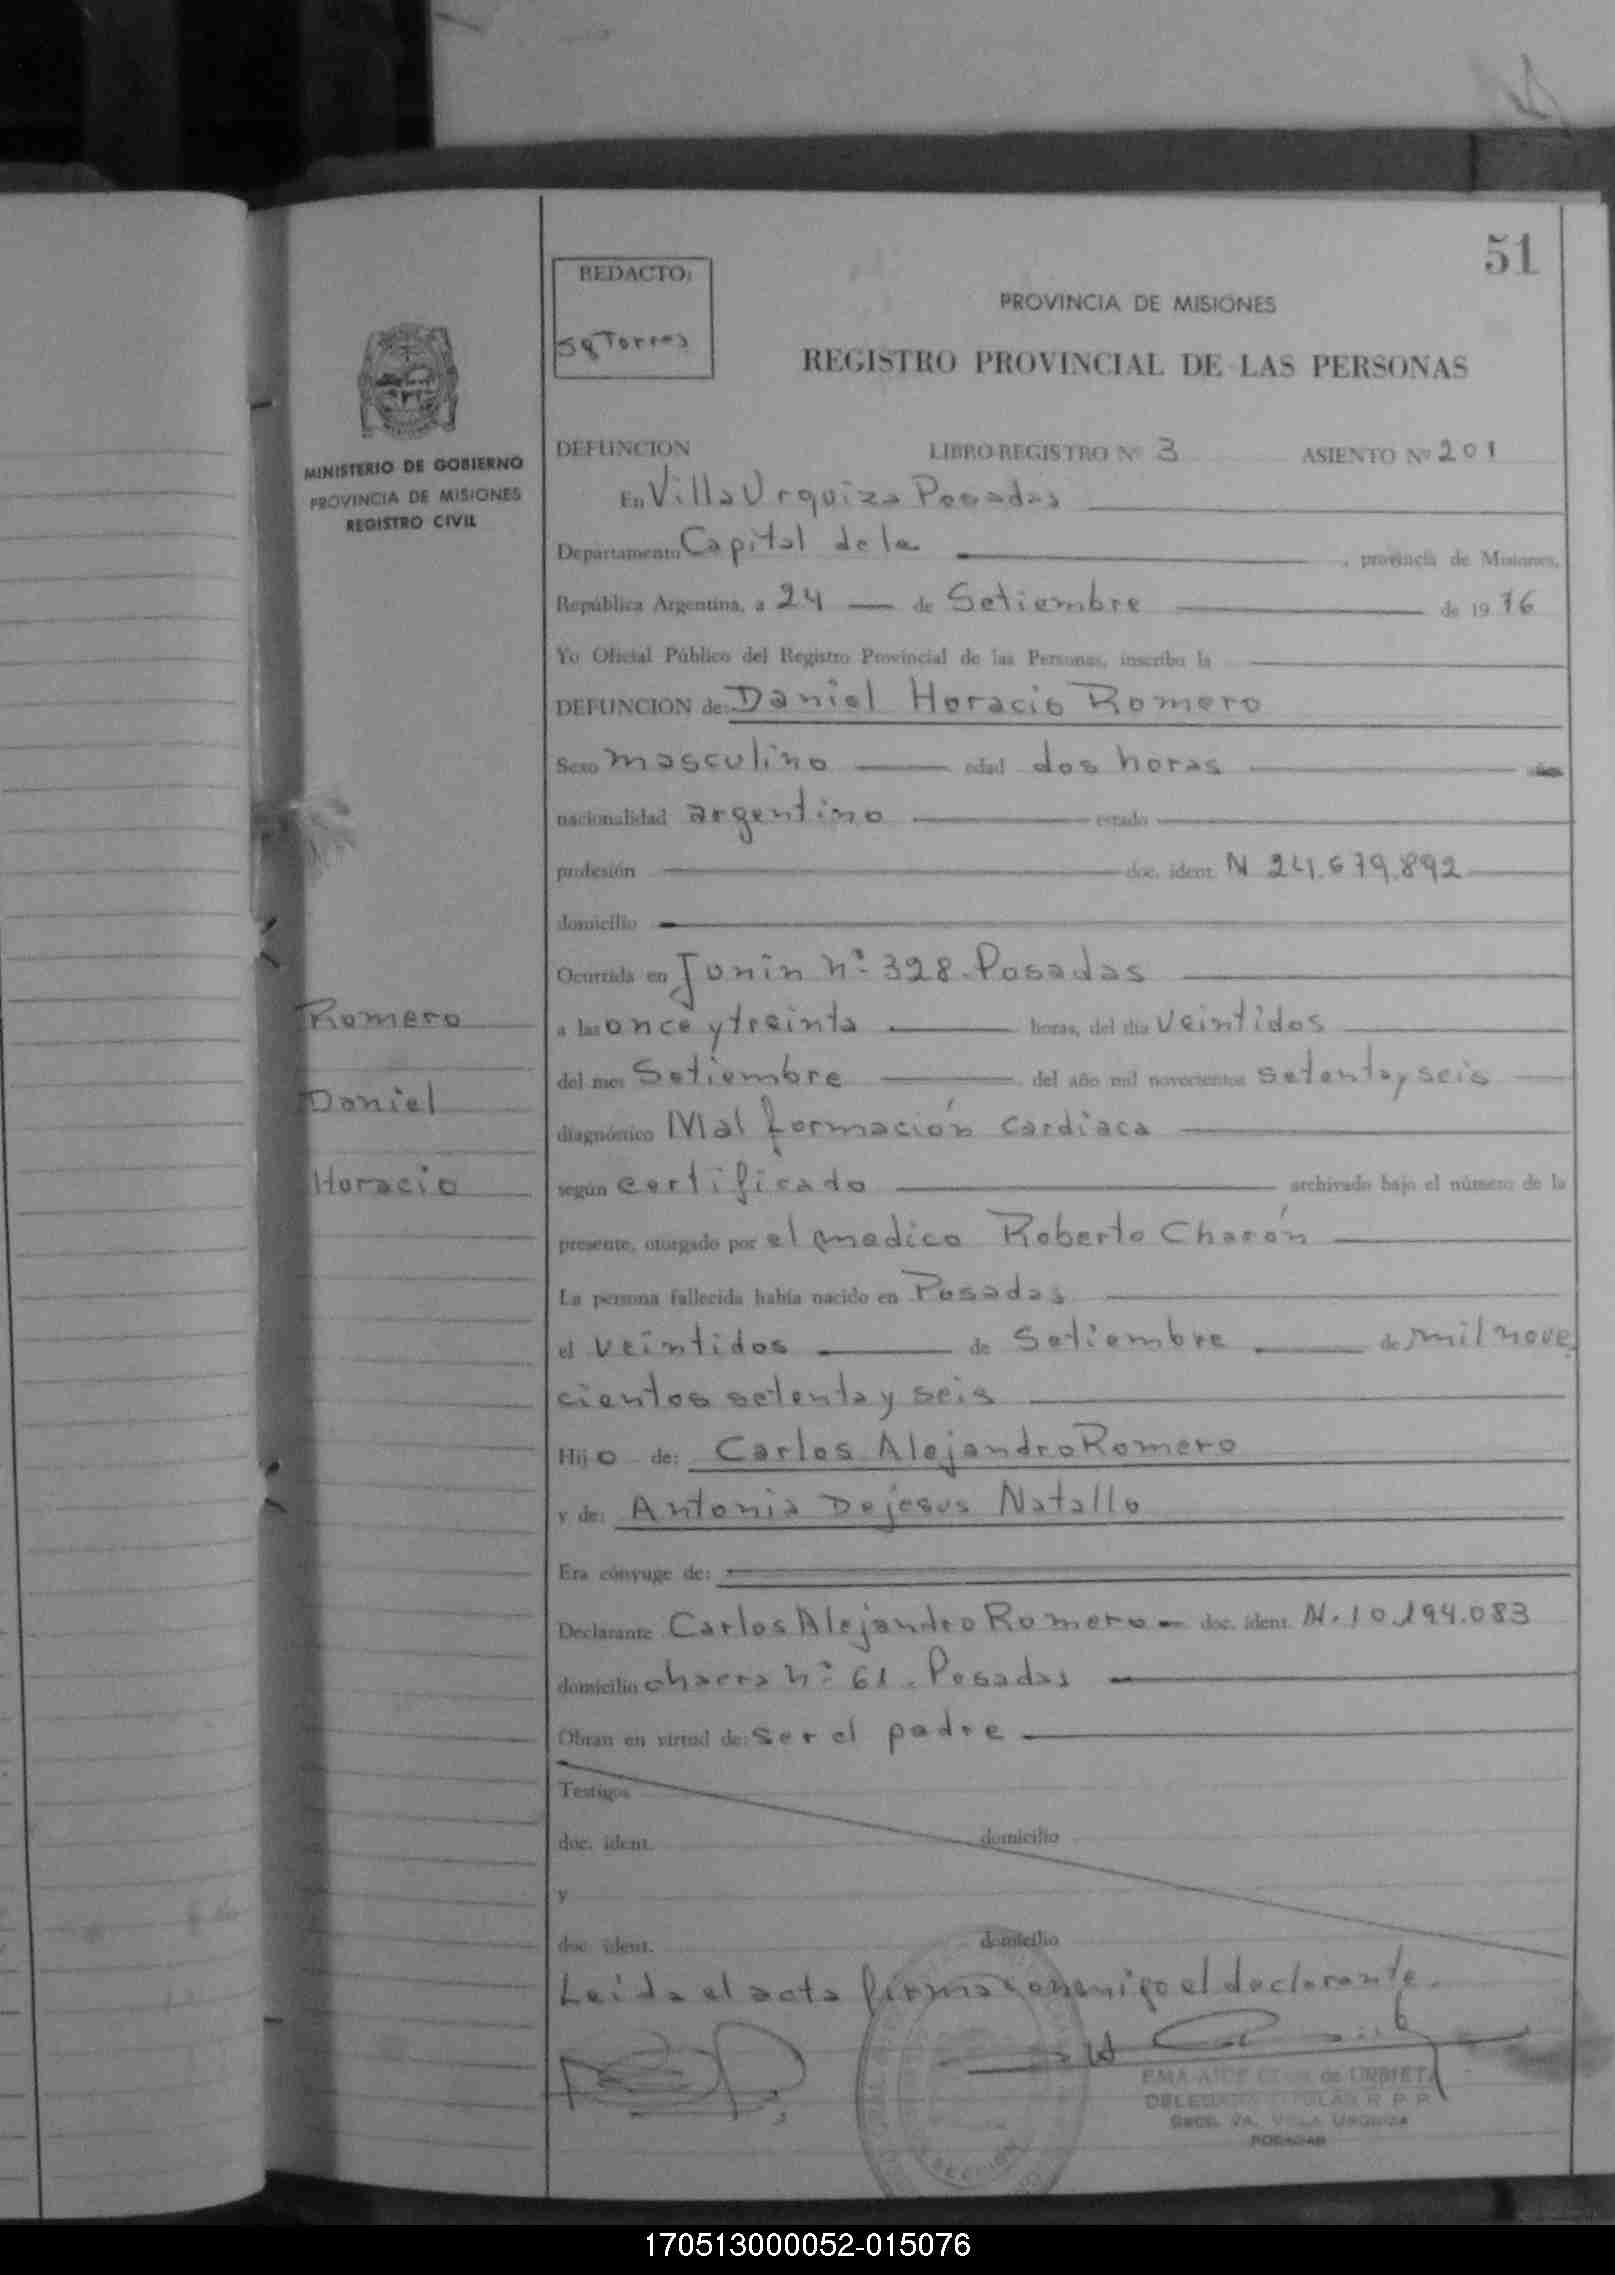 51
REDACTO:
Sg Torres
PROVINCIA DE MISIONES
REGISTRO PROVINCIAL DE LAS PERSONAS
MINISTERIO DE GOBIERNO
PROVINCIA DE MISIONES
REGISTRO CIVIL
DEFUNCION LIBRO-REGISTRO Nº 3 ASIENTO Nº 201
En Villa Urquiza Posadas
Departamento Capital de la , provincia de Misiones,
República Argentina, a 24 de Setiembre de 19 76
Yo Oficial Público del Registro Provincial de las Personas, inscribo la
DEFUNCION de: Daniel Horacio Romero
Sexo masculino edad dos horas
nacionalidad argentino estado
profesión doc. ident. N 24.679.892
domicilio
Ocurrida en Junin nº 328. Posadas
a las once y treinta horas, del día veintidos
del mes Setiembre del año mil novecientos setenta y seis
diagnóstico Mal formación cardiaca
según certificado archivado bajo el número de la
presente, otorgado por el medico Roberto
La persona fallecida había nacido en Posadas
el veintidos de Setiembre de mil nove
cientos setenta y seis
Hijo de: Carlos Alejandro Romero
y de: Antonia Dejesus Natallo
Era cónyuge de:
Declarante Carlos Alejandro Romero doc. ident. N. 10.194.083
domicilio chacra nº 61. Posadas
Obran en virtud de: Ser el padre
Testigos
doc. ident. domicilio
y
doc. ident. domicilio
Leida el acta firma conmigo el declarante.
Romero
Daniel
Horacio
de URBIETA
R P P
VILLA URQUIZA
POSADAS
SECCION
170513000052-015076